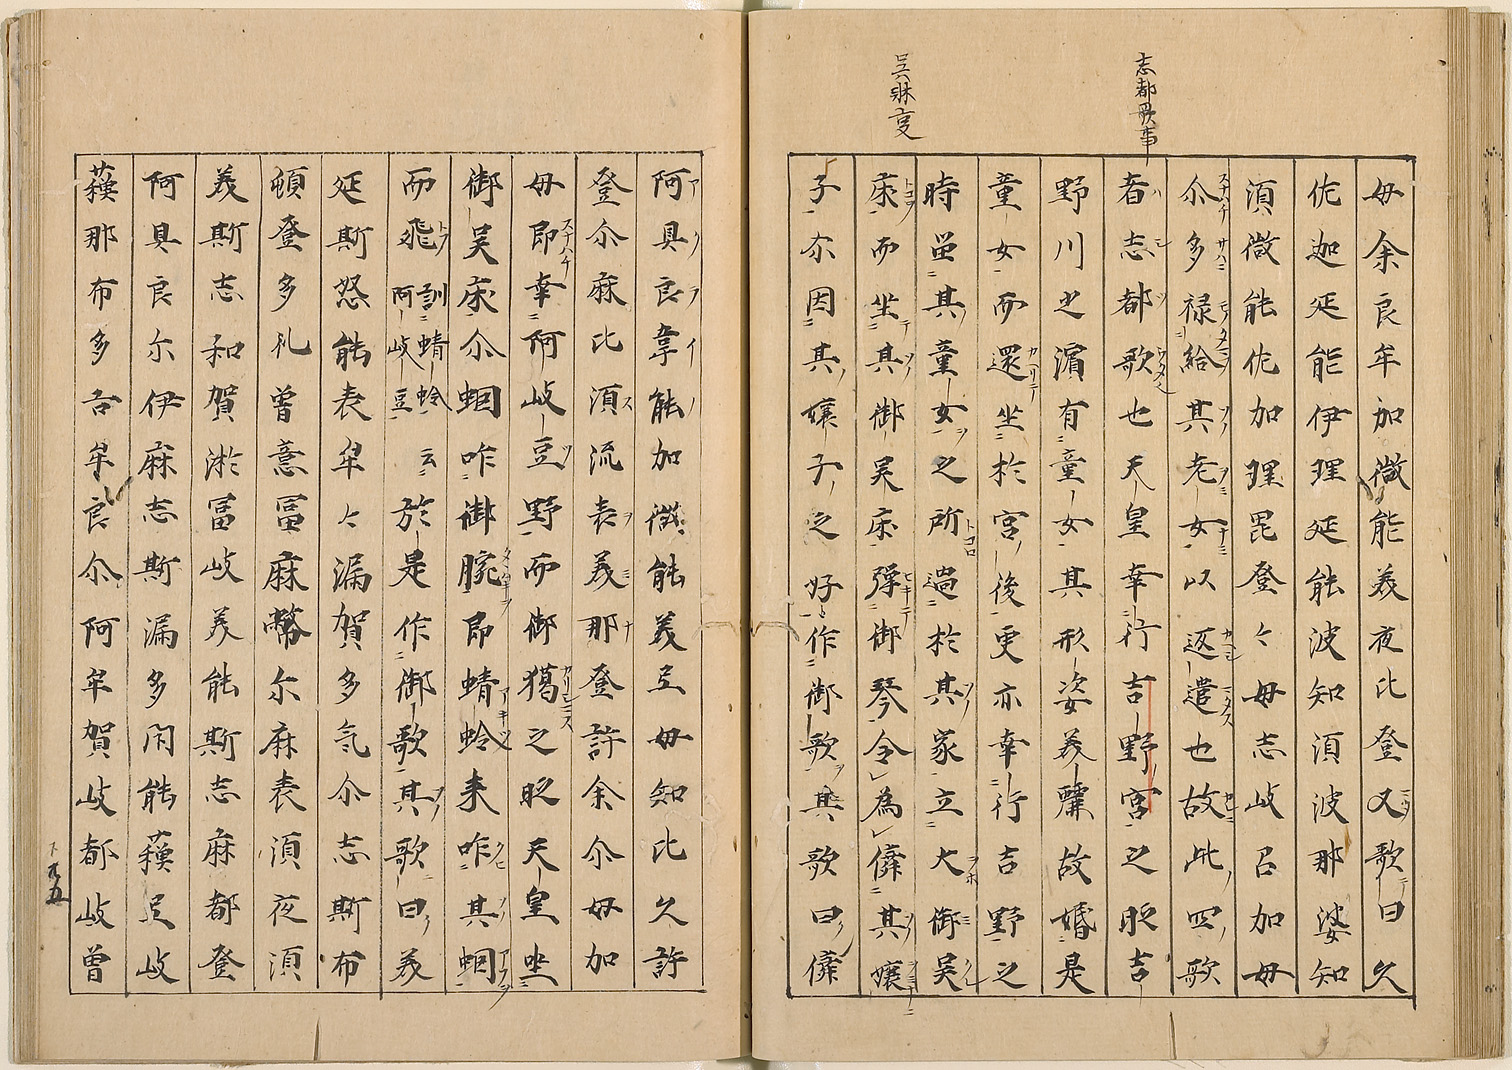 志都歌事
呉床事
毋余良牟加微能美夜比登又歌曰久
佐迦延能伊理延能波知須波那婆知
須微能佐加理毘登々毋志岐呂加毋
尒多禄給其老女以返遣也故此四歌
者志都歌也天皇幸行吉野宮之時吉
野川之濱有童女其形姿美麗故婚是
童女而還坐於宮後更亦幸行吉野之
時留其童女之所遇於其家立大御呉
床而坐其御呉床弾御琴令為儛其嬢
子尒因其嬢子之好作御歌其歌曰儛
阿具良韋能加微能美弖毋知比久許
登尒麻比須流表美那登許余尒毋加
毋即幸阿岐豆野而御獦之時天皇坐
御呉床尒蝈咋御腕即蜻蛉来咋其蝈
而飛訓蜻蛉云阿岐豆於是作御歌其歌曰美
延斯怒能表牟々漏賀多氣尒志斯布
須登多礼曽意富麻幣尒麻表須夜須
美斯志和賀淤富岐美能斯志麻都登
阿具良尒伊麻志斯漏多閇能蘓弖岐
蘓那布多古牟良尒阿牟賀岐都岐曽